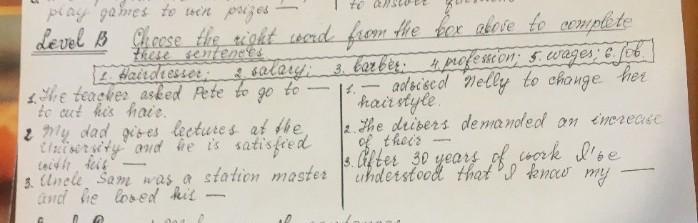 play games to win prizes —
to answer
Level B Choose the right word from the box above to complete
these sentences
1. Hairdresser; 2. salary; 3. barber; 4. profession; 5. wages; 6. job
1. The teacher asked Pete to go to —
to cut his hair.
2 My dad gives lectures at the
University and he is satisfied
with his —
3. Uncle Sam was a station master
and he loved his —
1. — advised Nelly to change her
hairstyle.
2. The drivers demanded an increase
of their —
3. After 30 years of work I've
understood that I know my —